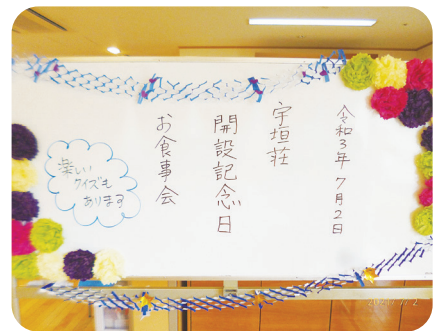 令和3年7月2日
宇垣荘
開設記念日
お食事会
楽しい
クイズも
あります